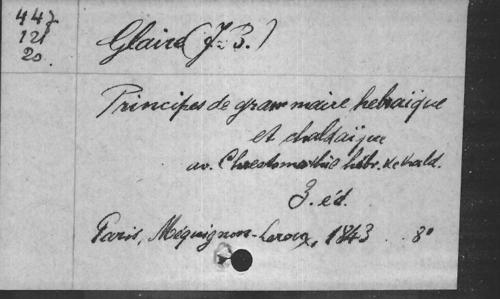 447
121
20.
Glaire (J. B.)
Principes de grammaire hebraïque
et chaldaïque
av. Chrestomathie hébr. et chald.
3. éd.
Paris, Méquignon-Leroux, 1843 . . 8°